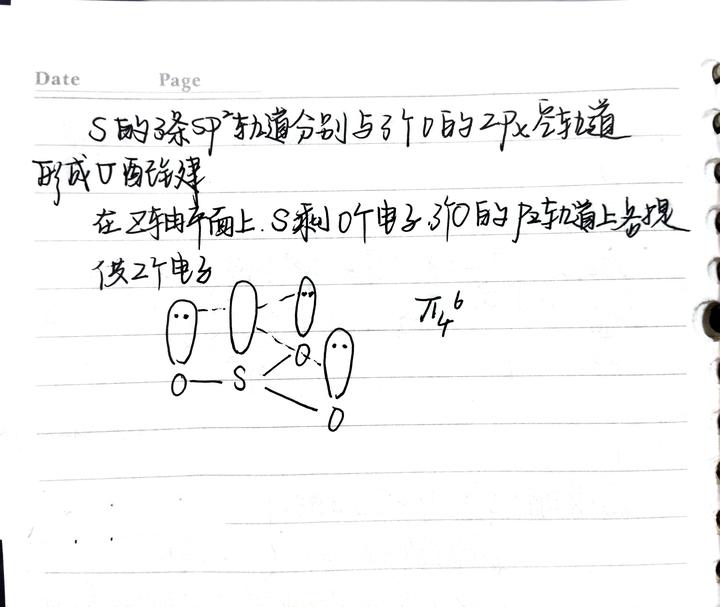 Date Page
S的3条sp²轨道分别与3个O的2Px空轨道
形成σ配键
在Z轴平面上.S剩0个电子.3个O的Pz轨道上各提
供2个电子
π₄⁶
O S O
O